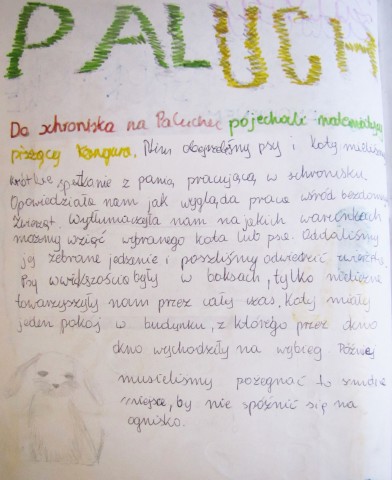 PALUCH
Do schroniska na Paluchu pojechali matematycy
piszący Kangura. Nim obejrzeliśmy psy i koty mieliśmy
krótkie spotkanie z panią pracującą w schronisku.
Opowiedziała nam jak wygląda praca wśród bezdomnych
zwierząt. Wytłumaczyła nam na jakich warunkach
możemy wziąć wybranego kota lub psa. Oddaliśmy
jej zebrane jedzenie i poszliśmy odwiedzić zwierzęta.
Psy wwiększości były w boksach, tylko nieliczne
towarzyszyły nam przez cały czas. Koty miały
jeden pokój w budynku, z którego przez okno
wychodziły na wybieg. Później
musieliśmy pożegnać to smutne
miejsce, by nie spóźnić się na
ognisko.